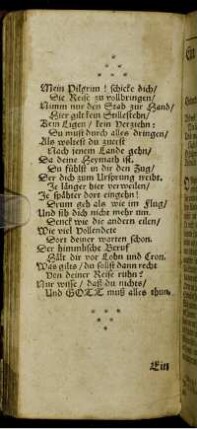 Mein Pilgrim! schicke dich/
Die Reise zu vollbringen/
Nimm nur den Stab zur Hand/
Hier gilt kein Stillestehn/
Kein Ligen/ kein Verziehn:
Du must durch alles dringen/
Als woltest du zuerst
Nach jenem Lande gehn/
Da deine Heymath ist.
Du fühlst in dir den Zug/
Der dich zum Ursprung treibt.
Je länger hier verweilen/
Je spähter dort eingehn!
Drum geh als wie im Flug/
Und sih dich nicht mehr um.
Denck wie die andern eilen/
Wie viel Vollendete
Dort deiner warten schon.
Der himmlische Beruf
Hält dir vor Lohn und Cron.
Was gilts/ du sollst dann recht
Von deiner Reise ruhn?
Nur wisse/ daß du nichts/
Und GOTT muß alles thun.
Ein